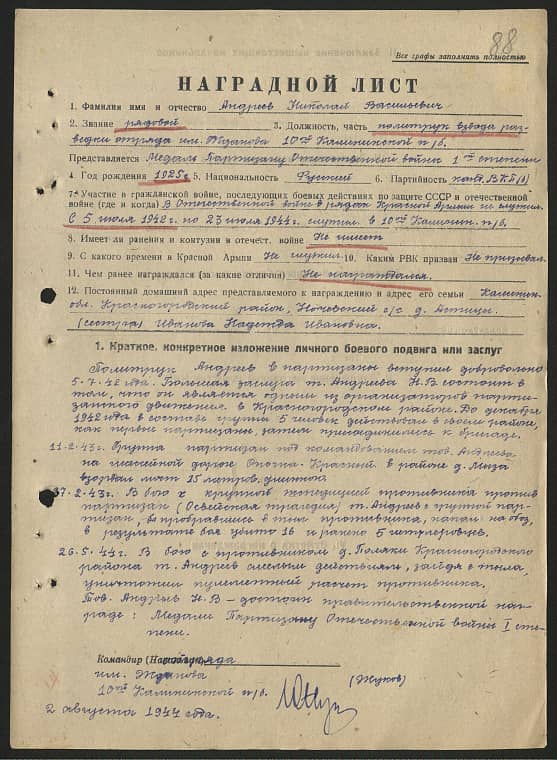 88
Все графы заполнять полностью
НАГРАДНОЙ ЛИСТ
1. Фамилия имя и отчество Андреев Николай Васильевич
2. Звание рядовой 3. Должность, часть политрук взвода раз-
ведки отряда им. Жданова 10ой Калининской п/б.
Представляется Медаль Партизану Отечественной войны 1ой степени
4. Год рождения 1925г. 5. Национальность Русский 6. Партийность канд. ВКП(б)
7. Участие в гражданской войне, последующих боевых действиях по защите СССР и отечественной
войне (где и когда) В Отечественной войне в рядах Красной Армии не служил.
С 5 июля 1942г. по 23 июля 1944г. служил в 10ой Калинин. п/б.
8. Имеет ли ранения и контузии в отечест. войне Не имеет
9. С какого времени в Красной Армии Не служил 10. Каким РВК призван Не призывал.
11. Чем ранее награждался (за какие отличия) Не награждался.
12. Постоянный домашний адрес представляемого к награждению и адрес его семьи Калинин.
обл. Красногородский район, с/с д.
(сестра) Иванова Надежда Ивановна.
1. Краткое, конкретное изложение личного боевого подвига или заслуг
Политрук Андреев в партизаны вступил добровольно
5-7-42 года. Большая заслуга т. Андреева Н.В состоит в
том, что он является одним из организаторов парти-
занского движения, в Красногородском районе. До декабря
1942 года в составе групы 5 человек действовал в своем районе,
как первые партизаны, затем присоединились к бригаде.
11-2-43г. Группа партизан под командованием тов. Андреева
на шоссейной дороге Опочка-Красный в районе д. Мыза
взорвал мост 15 метров длиной.
2-43г. В бою с крупной экспедицией противника против
партизан (Освейская трагедия) т. Андреев с групой пар-
тизан, пробравшись в тыл противника, напал на обоз,
в результате боя убито 16 и ранено 5 гитлеровцев.
26.5.44г. В бою с противником д. Поляки Красногородского
района т. Андреев смелыми действиями, зайдя с тыла,
уничтожил пулеметный расчет противника.
Тов. Андреев Н.В — достоин правительственной наг-
раде: Медали Партизану Отечественной войны I сте-
пени.
Командир отряда
им. Жданова
10ой Калининской п/б.
(Жуков)
2 августа 1944 года.